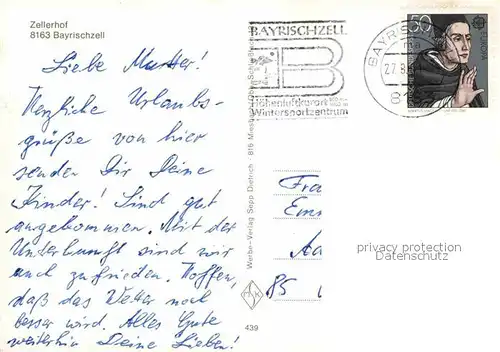 Zellerhof
8163 Bayrischzell
Liebe Mutter!
Herzliche Urlaubs-
grüße von hier
senden Dir Deine
Kinder! Sind gut
angekommen. Mit der
Unterkunft sind wir
auch zufrieden. Hoffen,
daß das Wetter noch
besser wird. Alles Gute
weiterhin Deine Lieben!
Werbe-Verlag Sepp Dietrich · 816 Miesbach
439
BAYRISCHZELL
B
Höhenluftkurort
Wintersportzentrum
BAYRIS
27.8
8
50
EUROPA
Frau
Ems
Aa
85
privacy protection
Datenschutz